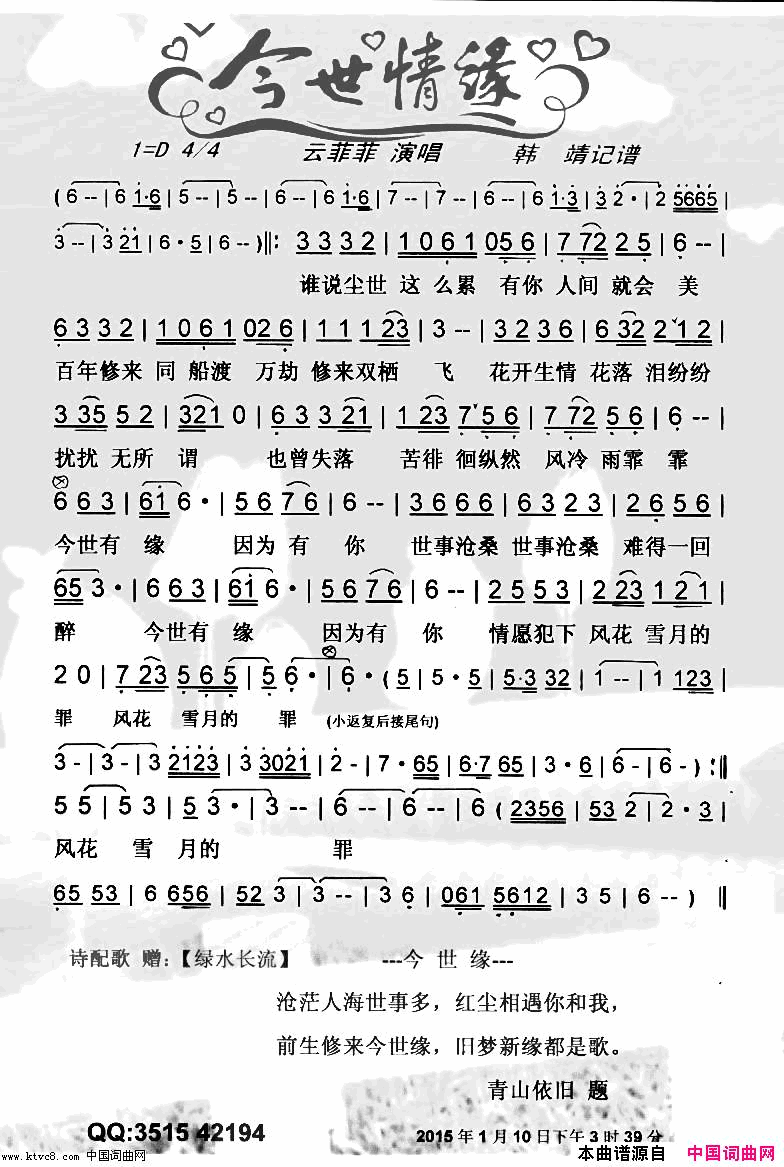 今世情缘
1=D 4/4 云菲菲 演唱 韩 靖记谱
(6--|6 1·6|5--|5--|6--|6 1·6|7--|7--|6--|6 1·3|3 2·|2 5665|
3--|3 21|6·5|6--)‖: 3 3 3 2|1 0 6 1 0 5 6|7 72 2 5|6--|
谁说尘世 这 么累 有你 人间 就会 美
6 3 3 2|1 0 6 1 0 2 6|1 1 1 23|3--|3 2 3 6|6 32 2 1 2|
百年修来 同 船渡 万劫 修来双栖 飞 花开生情 花落 泪纷纷
3 35 5 2|321 0|6 3 3 21|1 23 7 5 6|7 72 5 6|6--|
扰扰 无所 谓 也曾失落 苦徘 徊纵然 风冷 雨霏 霏
6 6 3|61 6·|5 6 7 6|6--|3 6 6 6|6 3 2 3|2 6 5 6|
今世有 缘 因为 有 你 世事沧桑 世事沧桑 难得一回
65 3·|6 6 3|61 6·|5 6 7 6|6--|2 5 5 3|2 23 1 2 1|
醉 今世有 缘 因为有 你 情愿犯下 风花 雪月的
2 0|7 23 5 6 5|5 6·|6·|5 5·|5 5|5·3 32|1--|1 123|
罪 风花 雪月的 罪 (小返复后接尾句)
3-|3-|3 2123|3 3021|2-|7·65|6·7 65|3·|6-|6-):‖
5 5|5 3|5 3·|3--|6--|6--(2356|53 2·3|
风花 雪 月的 罪
65 53|6 656|52 3|3--|3 6·|061 5612|3 5|6--)‖
诗配歌 赠:【绿水长流】 ---今 世 缘---
沧茫人海世事多，红尘相遇你和我，
前生修来今世缘，旧梦新缘都是歌。
青山依旧 题
QQ:3515 42194 2015 年 1 月 10 日下午 3 时 39 分
www.ktvc8.com 中国词曲网 本曲谱源自 中国词曲网